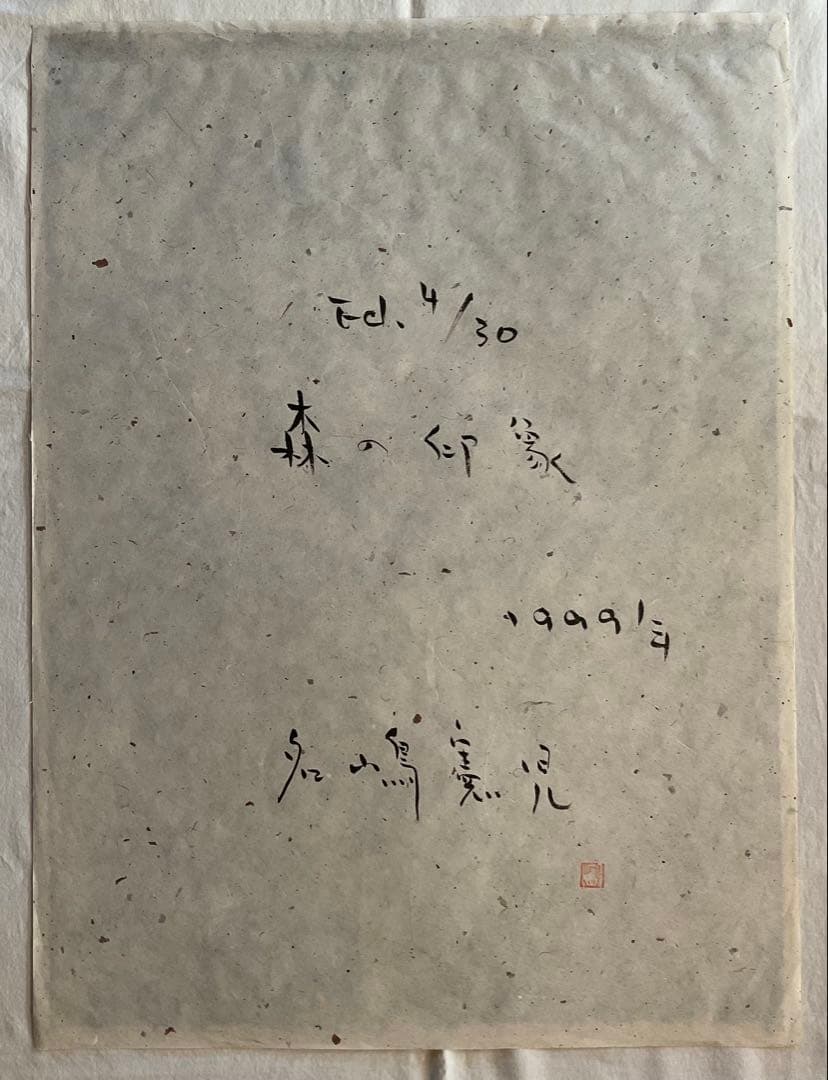 Ed. 4/30
森の印象
1999年
名嶋憲児